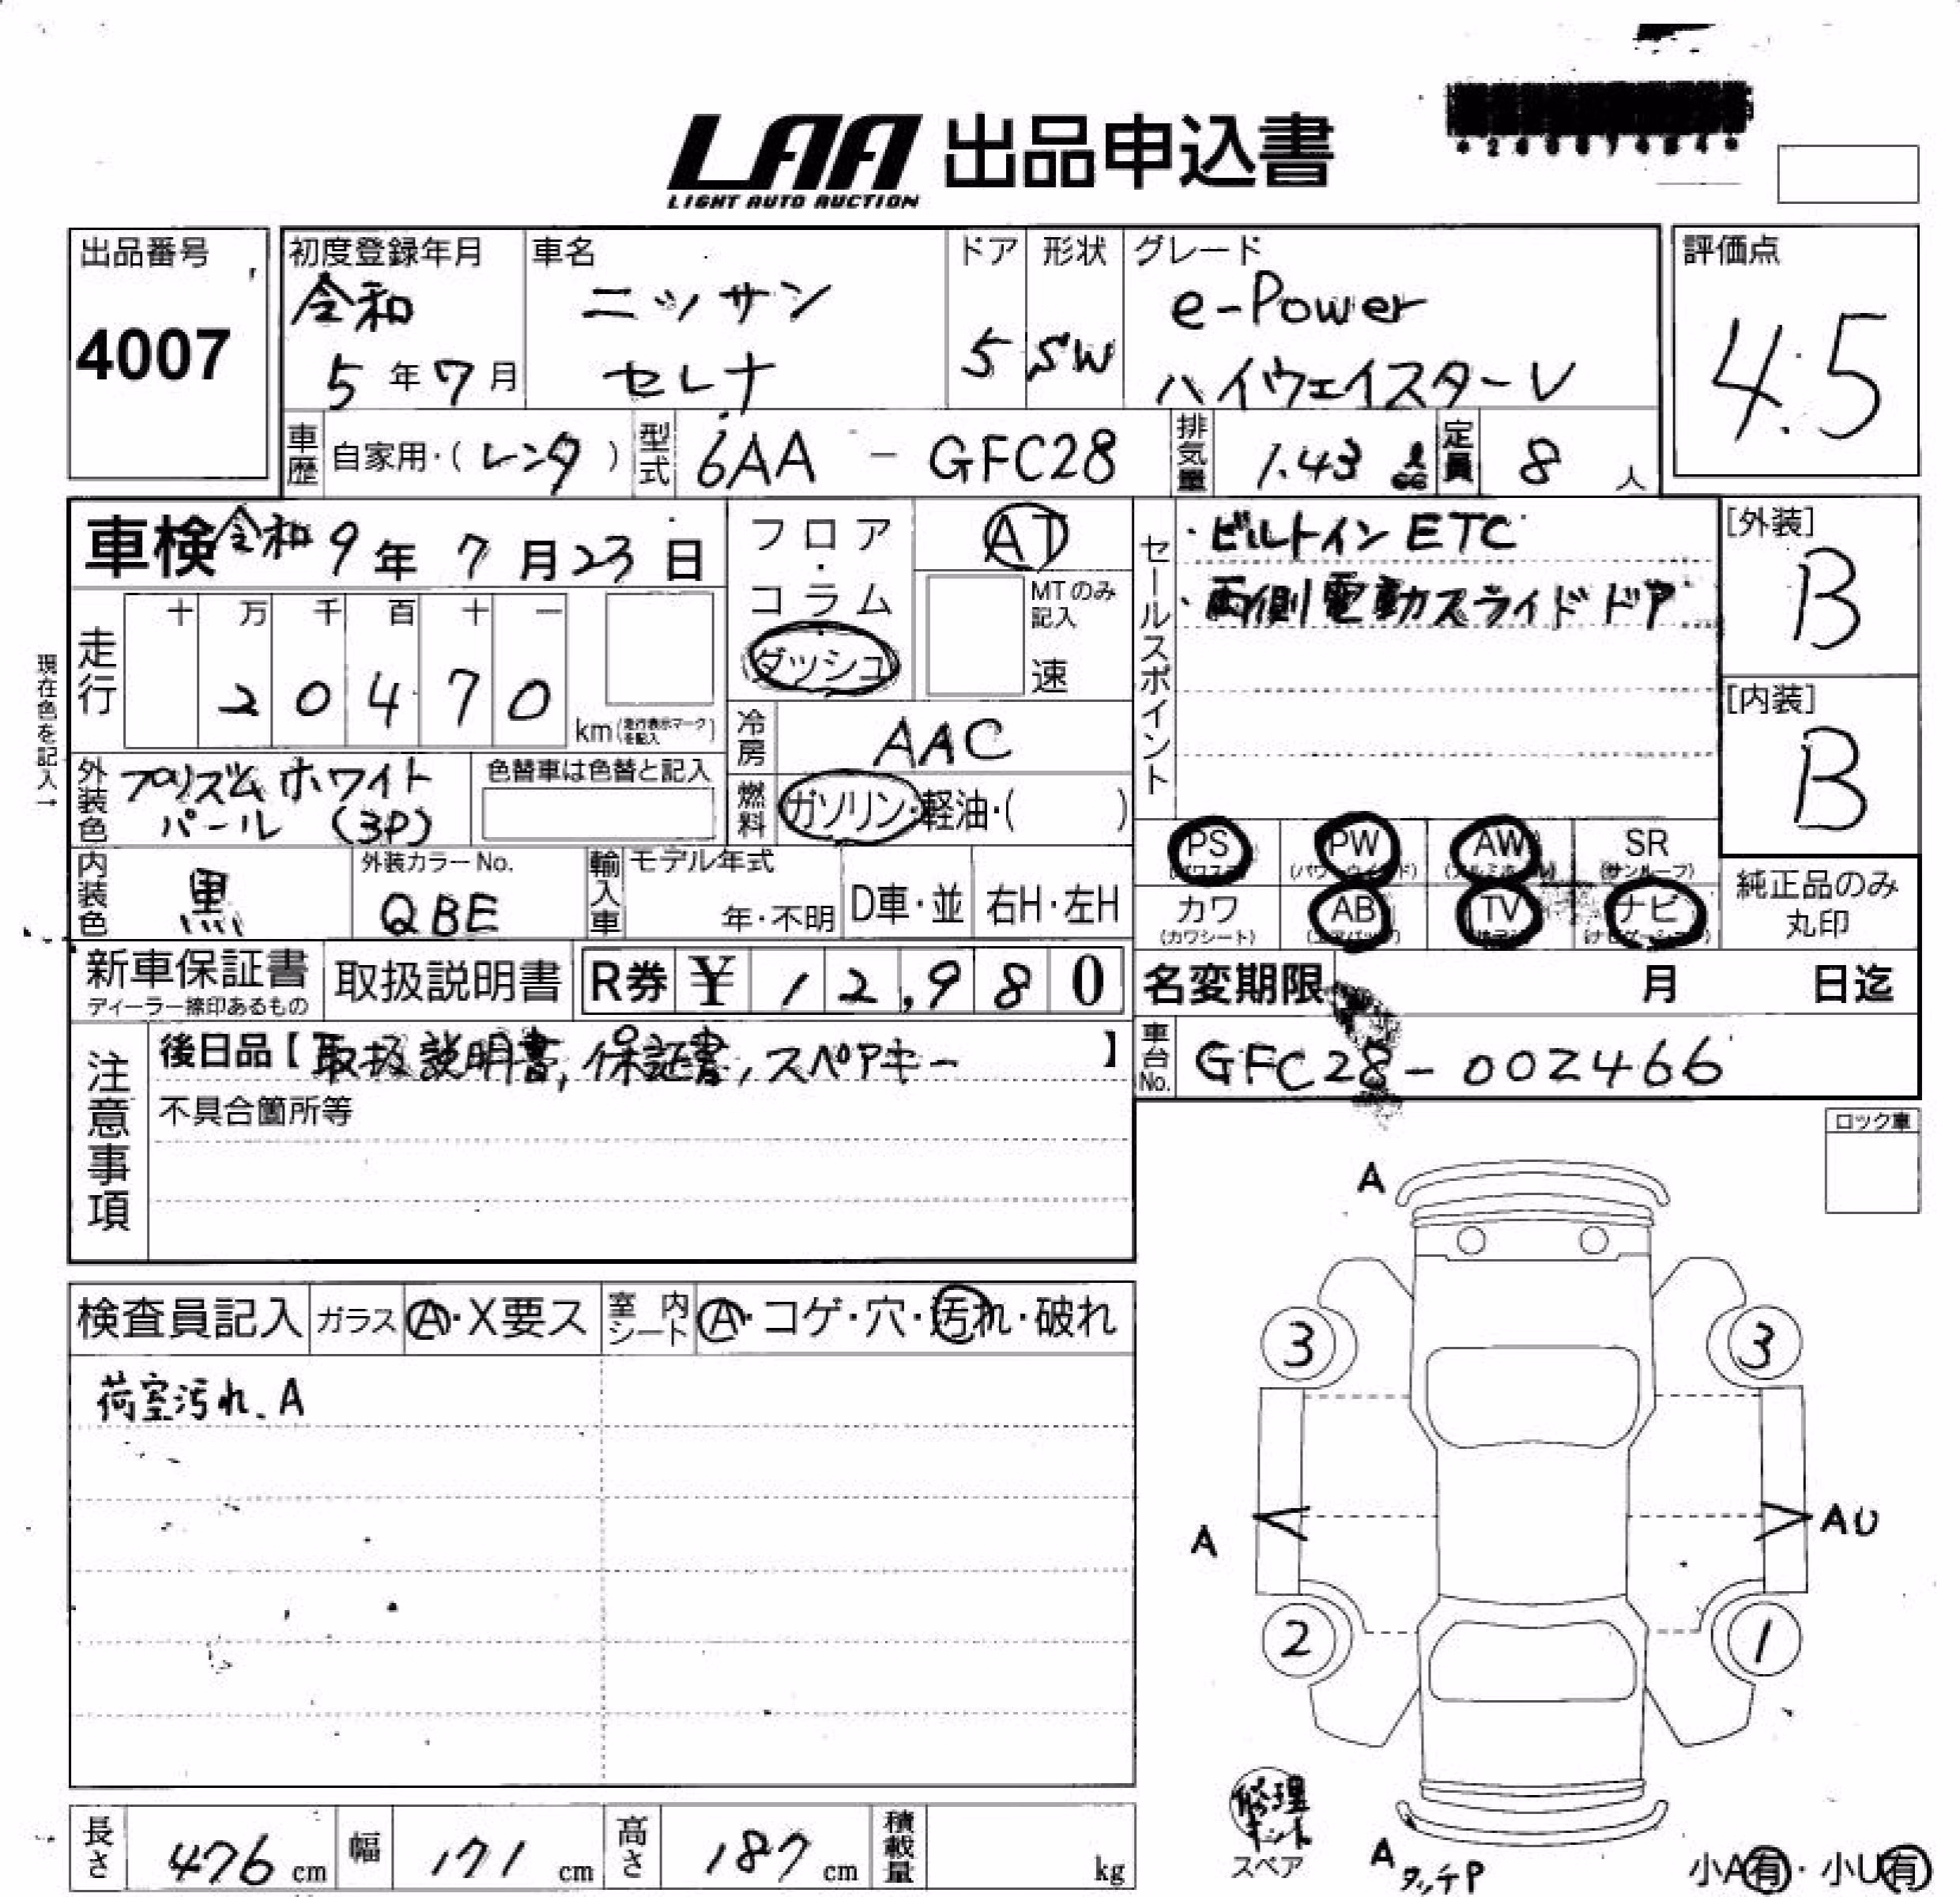 LAA 出品申込書
LIGHT AUTO AUCTION
出品番号
4007
初度登録年月
令和
5年7月
車名
ニッサン
セレナ
ドア
5
形状
SW
グレード
e-Power
ハイウェイスターV
評価点
4.5
車歴 自家用・(レンタ)
型式 6AA - GFC28
排気量 1.43 ℓ
定員 8 人
車検 令和 9年 7月 23日
走行
十 万 千 百 十 一
2 0 4 7 0
km(走行表示マークを記入)
現在色を記入→
外装色 プリズムホワイト
パール (3P)
色替車は色替と記入
内装色 黒
外装カラーNo.
QBE
フロア
・
コラム
・
ダッシュ
AT
MTのみ記入
速
冷房 AAC
燃料 ガソリン・軽油・( )
輸入車
モデル年式
年・不明
D車・並
右H・左H
セールスポイント
・ビルトインETC
・両側電動スライドドア
[外装]
B
[内装]
B
PS PW AW SR
(サンルーフ)
カワ AB TV ナビ
(カワシート)
純正品のみ
丸印
新車保証書
ディーラー捺印あるもの
取扱説明書
R券 ¥ 12,980
名変期限 月 日迄
車台No. GFC28-002466
注意事項
後日品【取扱説明書,保証書,スペアキー】
不具合箇所等
ロック車
検査員記入
ガラス A・X要ス
室内シート A・コゲ・穴・汚れ・破れ
荷室汚れ、A
A
3 3
A AU
2 1
修理キット
スペア
A タッチP
小A有・小U有
長さ 476 cm
幅 171 cm
高さ 187 cm
積載量 kg